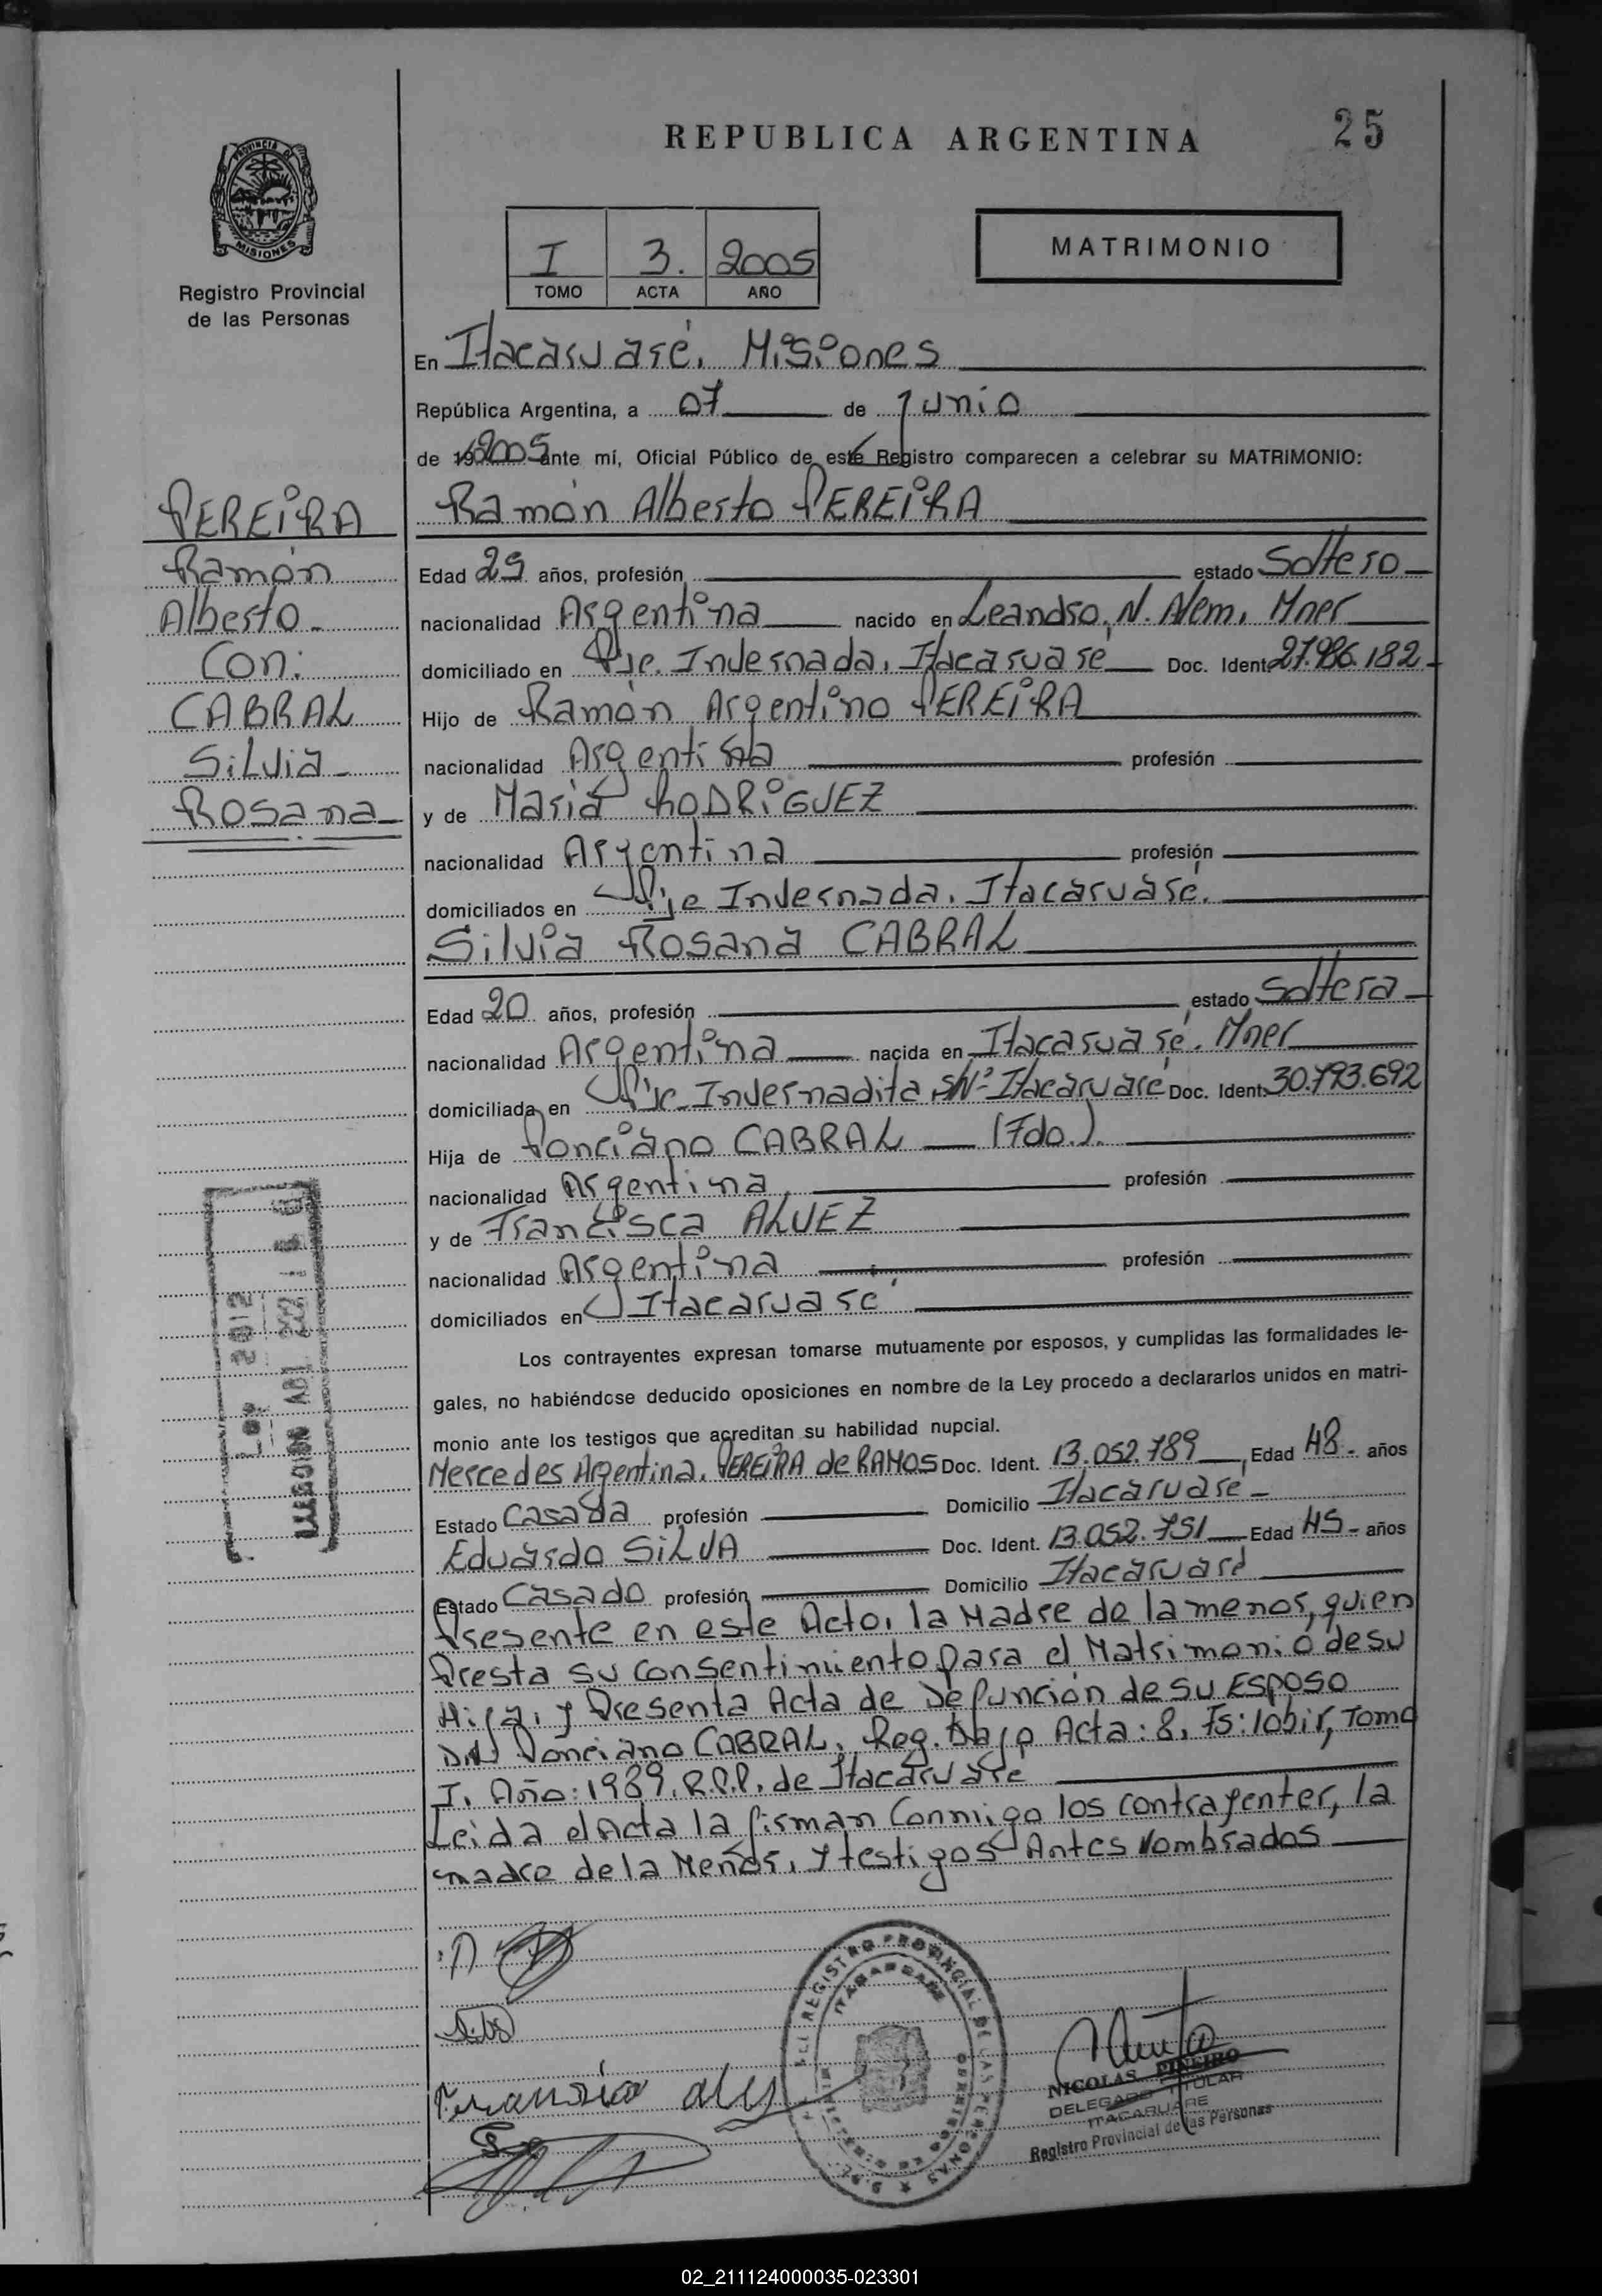 REPUBLICA ARGENTINA
25
PROVINCIA D
MISIONES
Registro Provincial
de las Personas
I 3. 2005
TOMO ACTA AÑO
MATRIMONIO
En Itacaruaré, Misiones
República Argentina, a 07 de Junio
de 19 2005 ante mí, Oficial Público de este Registro comparecen a celebrar su MATRIMONIO:
PEREIRA
Ramón
Alberto
Con:
CABRAL
Silvia
Rosana
Ramón Alberto PEREIRA
Edad 25 años, profesión estado Soltero
nacionalidad Argentina nacido en Leandro, N. Alem, Mnes
domiciliado en Pje. Invernada, Itacaruaré Doc. Ident. 27.986.182
Hijo de Ramón Argentino PEREIRA
nacionalidad Argentina profesión
y de Maria RODRIGUEZ
nacionalidad Argentina profesión
domiciliados en Pje Invernada, Itacaruaré.
Silvia Rosana CABRAL
Edad 20 años, profesión estado Soltera
nacionalidad Argentina nacida en Itacaruaré. Mnes
domiciliada en Pje. Invernadita S/Nº Itacaruaré Doc. Ident. 30.793.692
Hija de Ponciano CABRAL (Fdo.).
nacionalidad Argentina profesión
y de Francisca ALVEZ
nacionalidad Argentina profesión
domiciliados en Itacaruaré
Los contrayentes expresan tomarse mutuamente por esposos, y cumplidas las formalidades le-
gales, no habiéndose deducido oposiciones en nombre de la Ley procedo a declararlos unidos en matri-
monio ante los testigos que acreditan su habilidad nupcial.
Mercedes Argentina, PEREIRA de RAMOS Doc. Ident. 13.052.789 Edad 48 años
Estado Casada profesión Domicilio Itacaruaré
Eduardo SILVA Doc. Ident. 13.052.751 Edad 45 años
Estado Casado profesión Domicilio Itacaruaré
Presente en este Acto, la Madre de la menor, quien
Presta su consentimiento para el Matrimonio de su
Hija, y Presenta Acta de Defunción de su Esposo
Dn Ponciano CABRAL, Reg. bajo Acta: 8, Fs: 10bis, Tomo
I. Año: 1989, R.P.P. de Itacaruaré
Leida el Acta la firman Conmigo los contrayentes, la
madre de la Menor, y testigos Antes Nombrados
2012
REGISTRO PROVINCIAL DE LAS PERSONAS
ITACARUARE
NICOLAS PIÑEIRO
DELEGADO TITULAR
ITACARUARE
Registro Provincial de las Personas
02_211124000035-023301